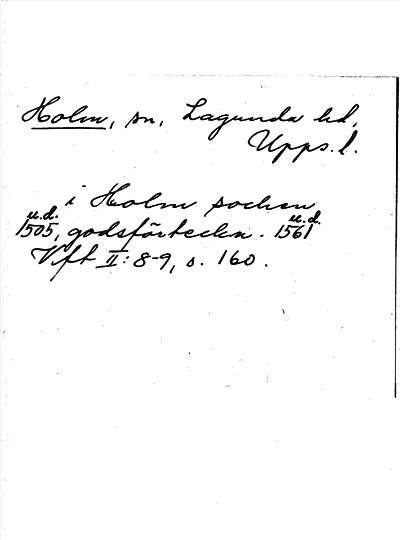 Holm, sn, Lagunda hd,
Upps. l.
i Holm socken
u.d. u.d.
1505, godsförteckn. 1561
Vft II: 8-9, s. 160.